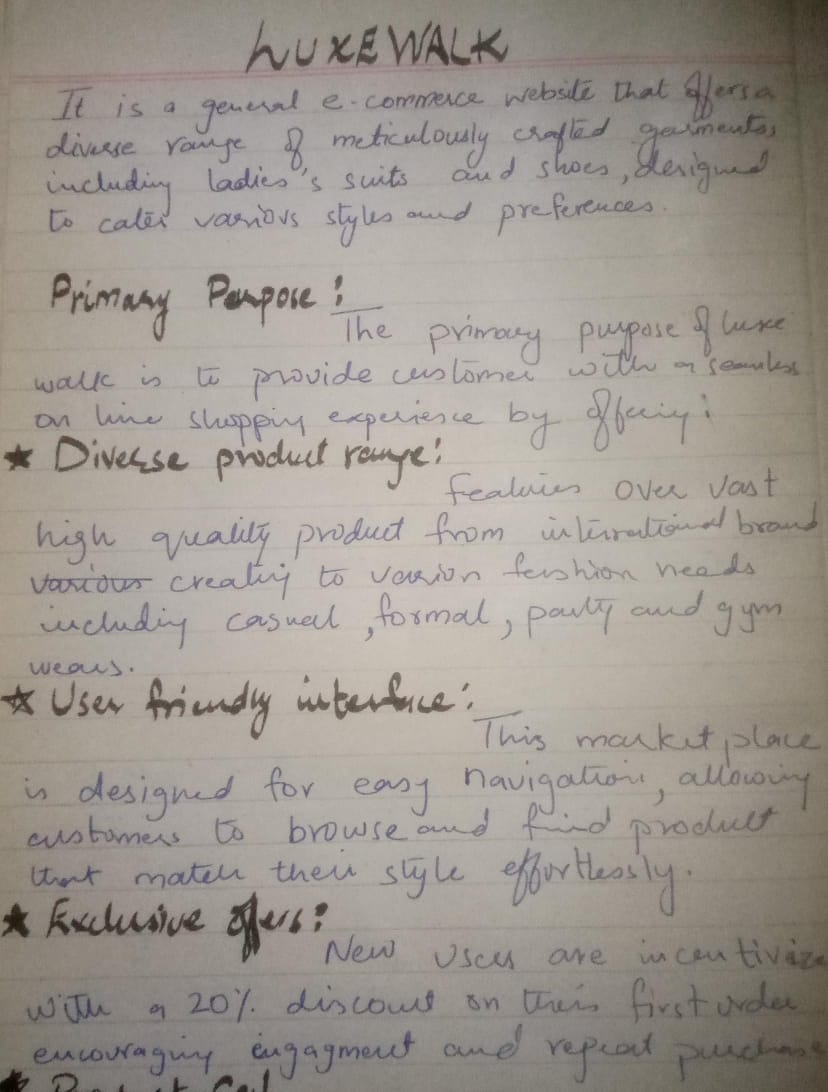 LUXEWALK
It is a general e-commerce website that offers a
diverse range of meticulously crafted garments,
including ladies's suits and shoes, designed
to cater various styles and preferences.
Primary Purpose:
The primary purpose of luxe
walk is to provide customer with a seamless
on line shopping experience by offering:
★ Diverse product range:
Features over vast
high quality product from international brand
various creating to various fashion needs
including casual, formal, party and gym
wears.
★ User friendly interface:
This market place
is designed for easy navigation, allowing
customers to browse and find product
that match their style effortlessly.
★ Exclusive offers:
New users are incentivize
with a 20% discount on their first order
encouraging engagment and repeat purchase